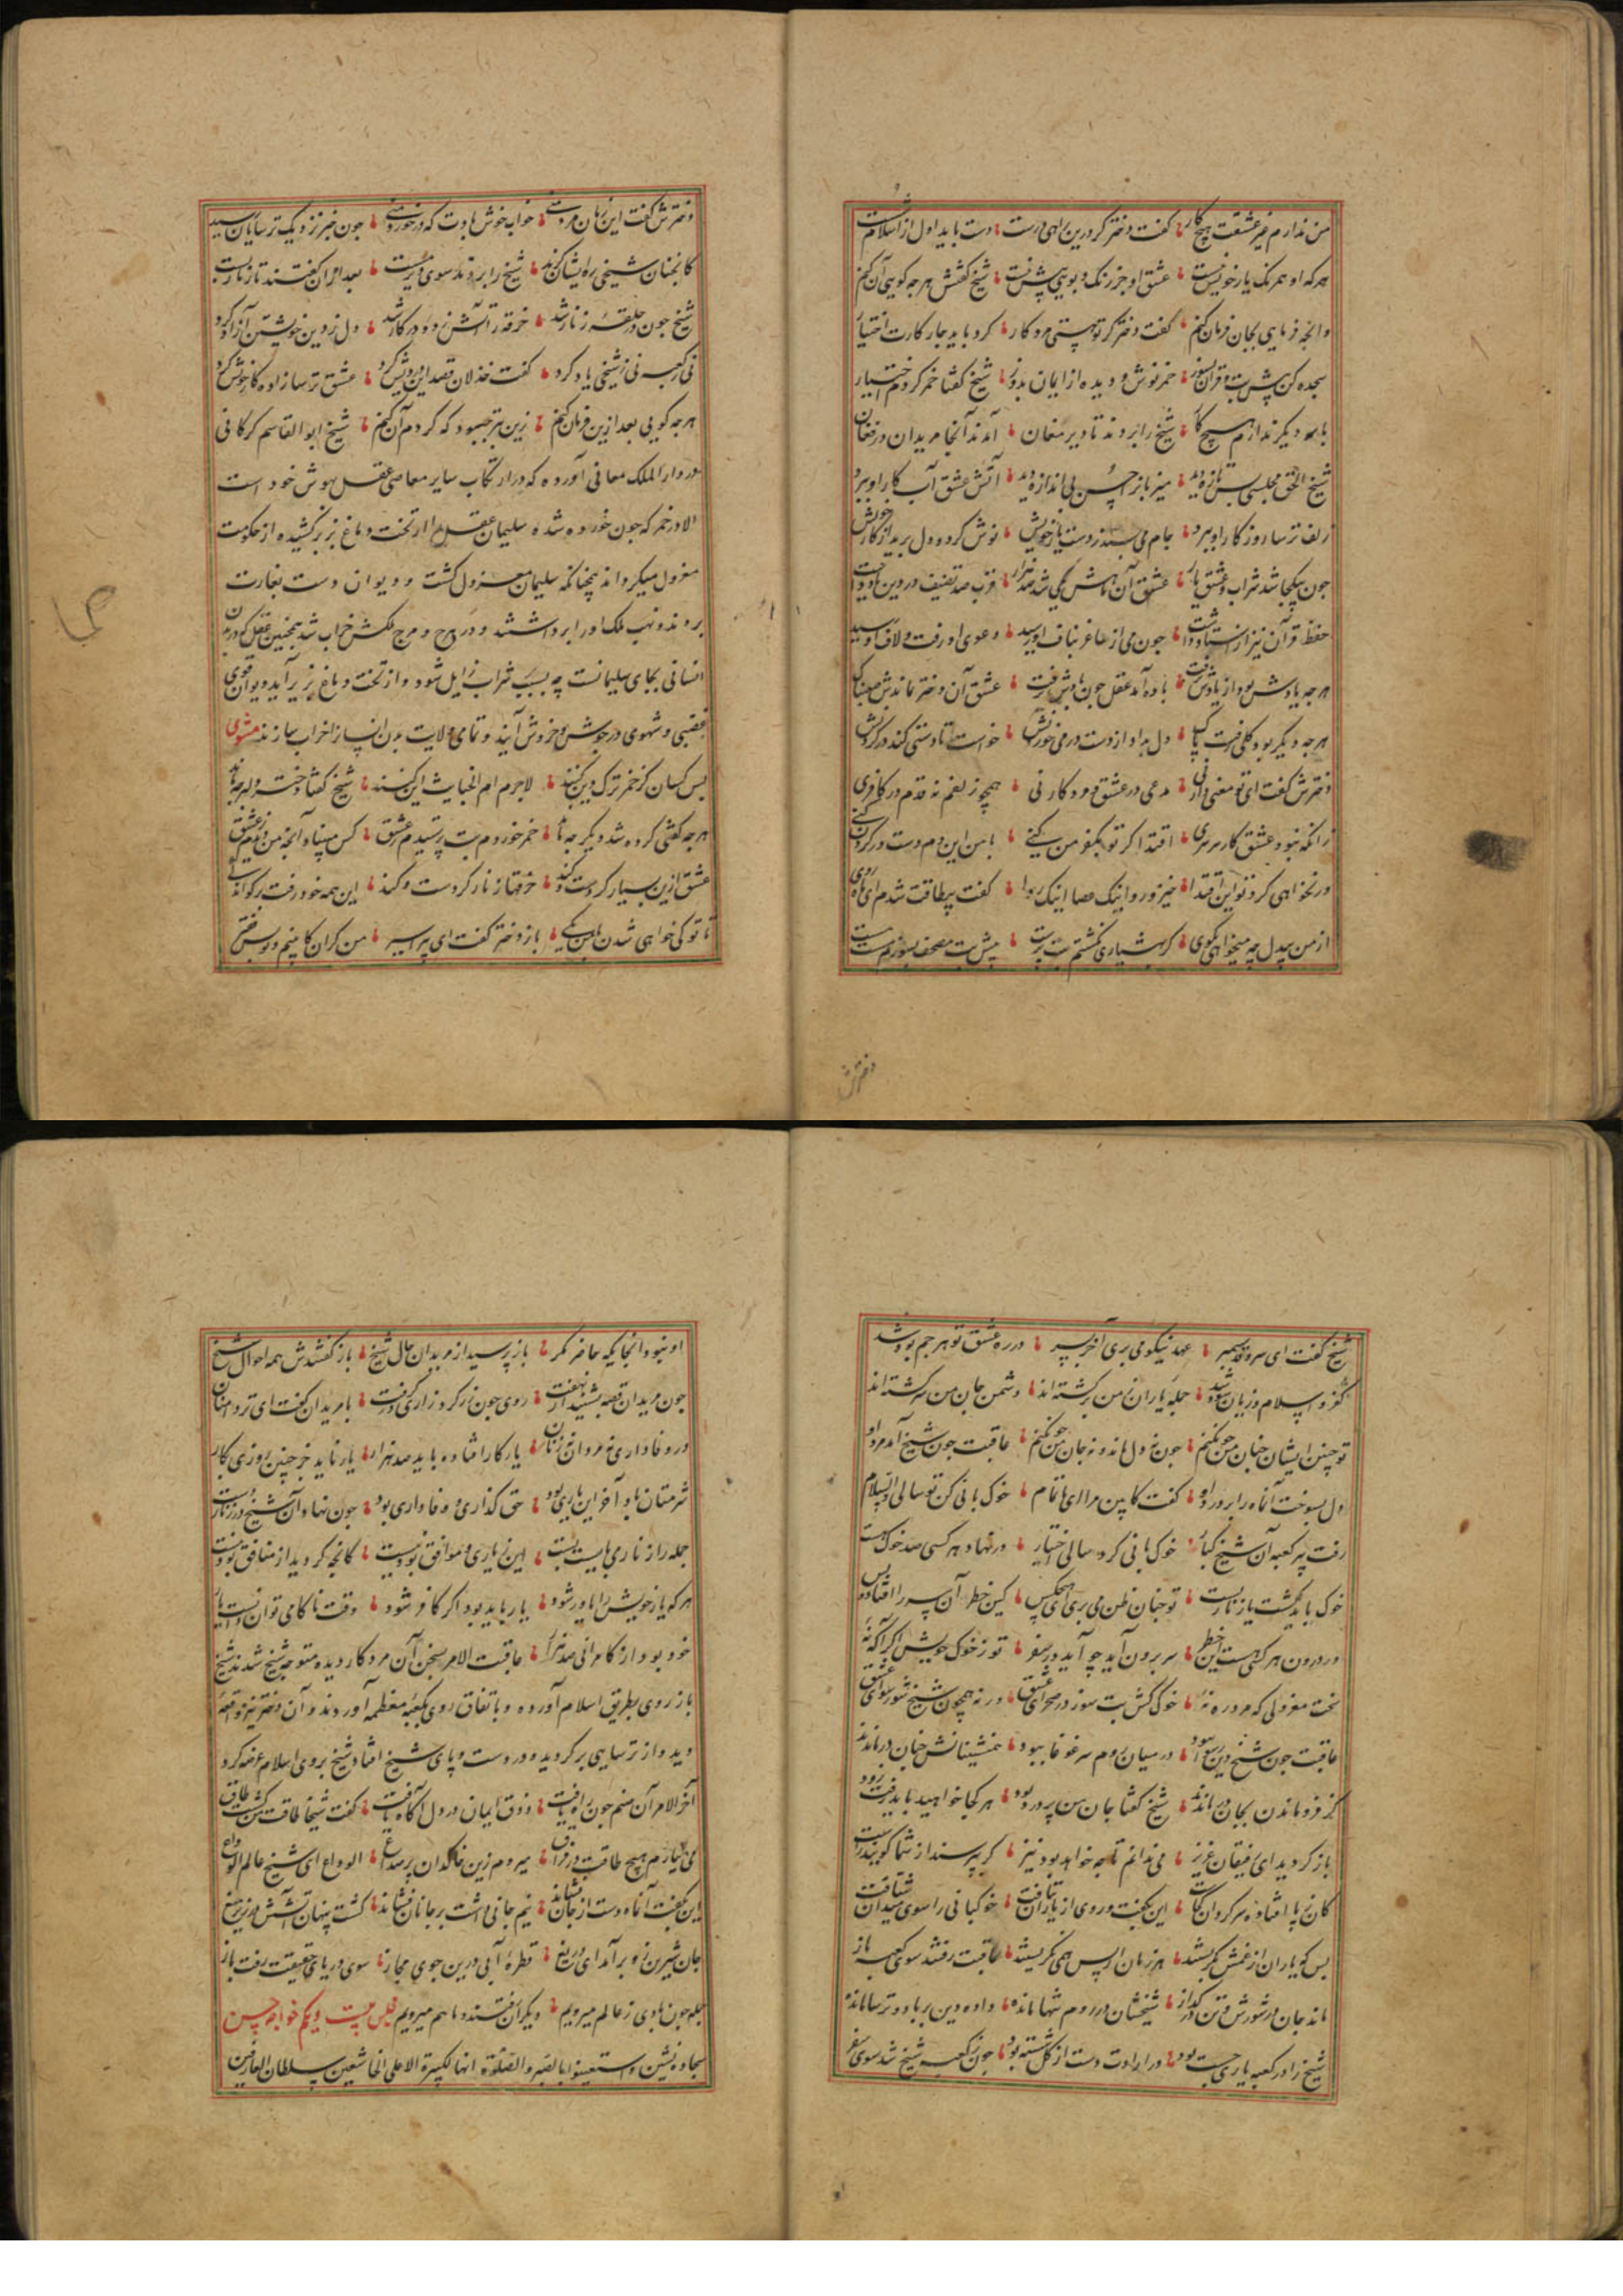 من ندارم غیر عشقت هیچ کار گفت دختر گر درین راهی درست دست باید اول از اسلام شست
هر که او همرنگ یار خویش نیست عشق او جز رنگ و بویی بیش نیست شیخ گفتش هر چه گویی آن کنم
وانچه فرمایی بجان فرمان کنم گفت دختر گر تو هستی مرد کار کرد باید چار کارت اختیار
سجده کن پیش بت و قران بسوز خمر نوش و دیده از ایمان بدوز شیخ گفتا خمر کردم اختیار
با سه دیگر ندارم هیچ کار شیخ را بردند تا دیر مغان آمدند آنجا مریدان در فغان
شیخ الحق مجلسی بس تازه دید میزبانرا حسن بی اندازه دید آتش عشق آب کار او ببرد
زلف ترسا روزگار او ببرد جام می بستد ز دست یار خویش نوش کرد و دل برید از کار خویش
چون بیکجا شد شراب و عشق یار عشق آن ماهش یکی شد صد هزار قرب صد تصنیف در دین یاد داشت
حفظ قرآن نیز از استاد داشت چون می از ساغر بناف او رسید دعوی او رفت و لاف او رسید
هر چه یادش بود از یادش برفت باده آمد عقل چون بادش برفت عشق آن دختر بماندش صعبناک
هر چه دیگر بود کلی رفت پاک دل بداد از دست در می خوردنش خواست تا دستی کند در گردنش
دخترش گفت ای تو معنی دار نی مدعی در عشق و در کار نی همچو زلفم نه قدم در کافری
زانکه نبود عشق کار سرسری اقتدا گر تو بکفر من کنی با من این دم دست در گردن کنی
ور نخواهی کرد تو این اقتدا خیز و رو اینک عصا اینک ردا گفت بیطاقت شدم ای ماه روی
از من بیدل چه میخواهی بگوی گر بهشیاری نگشتم بت پرست پیش بت مصحف بسوزم مست مست
دخترش
دخترش گفت این زمان مرد منی خواب خوش بادت که در خورد منی چون خبر نزدیک ترسایان رسید
کانچنان شیخی ره ایشان گزید شیخ را بردند سوی دیر مست بعد ازان گفتند تا زنار بست
شیخ چون در حلقه زنار شد خرقه را آتش زد و در کار شد دل ز دین خویشتن آزاد کرد
نی ز کعبه نی ز شیخی یاد کرد گفت خذلان قصد این درویش کرد عشق ترسازاده کار خویش کرد
هر چه گویی بعد ازین فرمان کنم زین بتر چبود که کردم آن کنم شیخ ابو القاسم کرکانی
در دار الملک معانی آورده که در ارتکاب سایر معاصی عقل بهوش خود است
الا در خمر که چون خورده شده سلیمان عقل را از تخت دماغ بزیر کشیده از حکومت
معزول میگرداند چنانکه سلیمان معزول گشت و دیوان دست بغارت
بردند و نهب ملک او را برداشتند و در هرج و مرج ملکش خراب شد همچنین عقل که در بدن
انسانی بجای سلیمانست چه بسبب شراب زایل شود و از تخت دماغ بزیر آید دیوان قوی
غضبی و شهوی در جوش و خروش آیند و تمامی ولایت بدن انسان را خراب سازند مثنوی
بس کسان کز خمر ترک دین کنند لاجرم ام الخبایث این کنند شیخ گفتا دختر دلبر چه ماند
هر چه گفتی کرده شد دیگر چه ماند خمر خوردم بت پرستیدم ز عشق کس مبیناد آنچه من دیدم ز عشق
عشق ازین بسیار کردست و کند خرقه با زنار کردست و کند این همه خود رفت بر گو اندکی
تا تو کی خواهی شدن با من یکی باز دختر گفت ای پیر اسیر من گران کابینم و تو بس فقیر
شیخ گفت ای سرو قد سیمبر عهد نیکو می بری آخر بسر در ره عشق تو هر چم بود شد
کفر و اسلام و زیان و سود شد جمله یاران من برگشته اند دشمن جان من سرگشته اند
تو چنین ایشان چنان من چون کنم چون نه دل ماند و نه جان من چون کنم عاقبت چون شیخ آمد مرد او
دل بسوخت آن ماه را بر درد او گفت کابین مرا ای ناتمام خوک بانی کن تو سالی والسلام
رفت پیر کعبه آن شیخ کبار خوک بانی کرد سالی اختیار در نهاد هر کسی صد خوک هست
خوک باید کشت یا زنار بست تو چنان ظن می بری ای هیچکس کین خطر آن پیر را افتاد و بس
در درون هر کسی هست این خطر سر برون آید چو آید در سفر تو ز خوک خویش اگر آگه نه
سخت معزولی که مرد ره نه خوک کش بت سوز در صحرای عشق ورنه همچون شیخ شو رسوای عشق
عاقبت چون شیخ دین رسوا ببود در میان روم سر غوغا ببود همنشینانش چنان درماندند
کز فرو ماندن بجان درماندند شیخ گفتا جان من پر درد بود هر کجا خواهید باید رفت زود
باز گردید ای رفیقان عزیز می ندانم تا چه خواهد بود نیز گر بپرسند از شما گویید راست
کان ز پا افتاده سرگردان کجاست این بگفت و روی از یاران بتافت خوکبانی را سوی میدان شتافت
بس که یاران از غمش بگریستند هر زمان از پس همی نگریستند عاقبت رفتند سوی کعبه باز
ماند جان در سوزش و تن در گداز شیخشان در روم تنها مانده داده دین بر باد و ترسا مانده
شیخ را در کعبه یاری چست بود در ارادت دست از کل شسته بود چون ز کعبه شیخ شد سوی سفر
او نبود آنجایگه حاضر مگر باز پرسید از مریدان حال شیخ باز گفتندش همه احوال شیخ
چون مریدان قصه بشنید از نهفت روی چون زر کرد و زاری درگرفت با مریدان گفت ای تر دامنان
در وفاداری نه مردان نه زنان یار کار افتاده باید صد هزار یار ناید جز چنین روزی بکار
شرمتان باد آخر این یاری بود حق گذاری و وفاداری بود چون نهاد آن شیخ بر زنار دست
جمله را زنار می بایست بست این نه یاری و موافق بودنیست کانچه کردید از منافق بودنیست
هر که یار خویش را یاور شود یار باید بود اگر کافر شود وقت ناکامی توان دانست یار
خود بود در کامرانی صد هزار عاقبت الامر بسخن آن مرد کار دیده متوجه شیخ شدند شیخ
باز روی بطریق اسلام آورده و باتفاق روی بکعبه معظمه آوردند و آن دختر نیز واقعه
دید و از ترسایی برگردید و در دست و پای شیخ افتاد شیخ بروی اسلام عرضه کرد
آخر الامر آن صنم چون راه یافت ذوق ایمان در دل آگاه یافت گفت شیخا طاقت من گشت طاق
می نیارم هیچ طاقت در فراق میروم زین خاکدان پر صداع الوداع ای شیخ عالم الوداع
این بگفت آن ماه دست از جان فشاند نیم جانی داشت بر جانان فشاند گشت پنهان آفتابش زیر میغ
جان شیرین زو برآمد ای دریغ قطره آبی درین جوی مجاز سوی دریای حقیقت رفت باز
جمله چون بادی ز عالم میرویم دیگران رفتند و ما هم میرویم مجلس بیست و یکم خواجه حسن
سجاده نشین و استعینوا بالصبر والصلوة انها لکبیرة الا علی الخاشعین سلطان العارفین